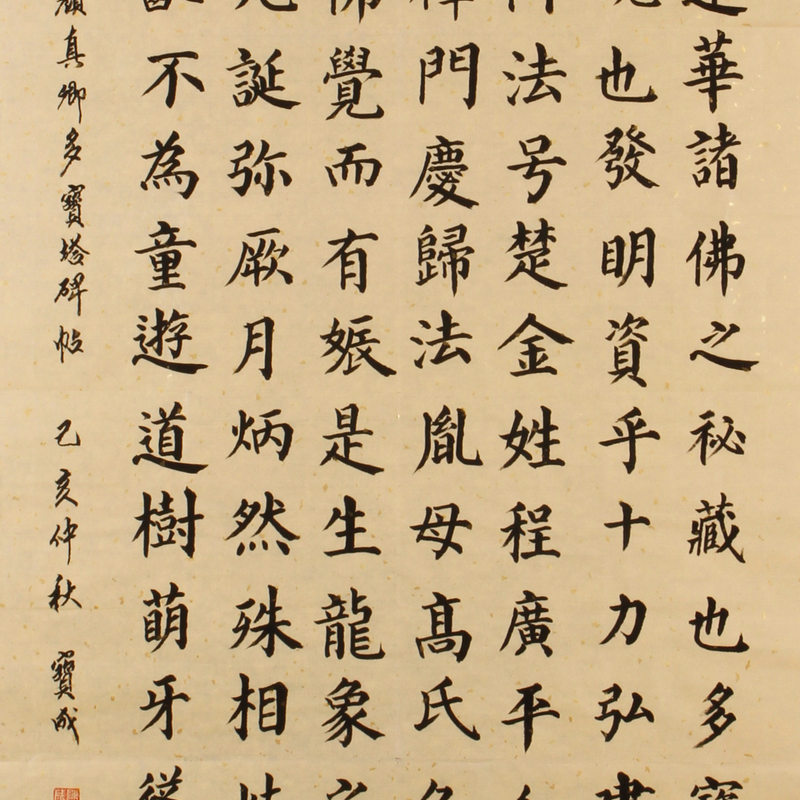 華諸佛之秘藏也多
也發明資乎十力弘
法号楚金姓程廣平
門慶歸法胤母高氏
覺而有娠是生龍象
誕弥厥月炳然殊相
不為童遊道樹萌牙
顏真卿多寶塔碑帖 己亥仲秋 寶成